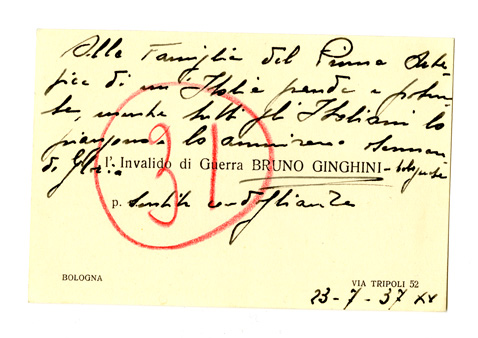 Alla Famiglia del Primo Arte
fice di un'Italia grande e poten
te, mentre tutti gli Italiani lo
piangono e lo ammirano
di Gloria
31
l'Invalido di Guerra BRUNO GINGHINI - bolognese
p. sentite condoglianze
BOLOGNA
VIA TRIPOLI 52
23-7-37 XV